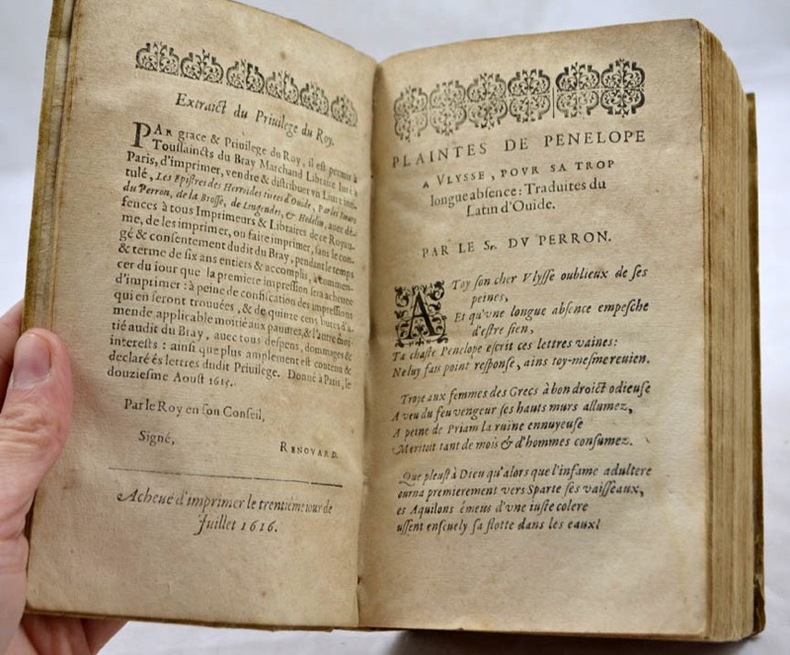 Extraict du Priuilege du Roy.
PAr grace & Priuilege du Roy, il est permis à
Toussaincts du Bray Marchand Libraire Iuré à
Paris, d'imprimer, vendre & distribuer vn Liure inti-
tulé, Les Epistres des Heroides tirees d'Ouide, par les sieurs
du Perron, de la Brosse, de Lingendes, & Hedelin, auec dé-
fences à tous Imprimeurs & Libraires de ce Royau-
me, de les imprimer, ou faire imprimer, sans le con-
gé & consentement dudit du Bray, pendant le temps
& terme de six ans entiers & accomplis, à commen-
cer du iour que la premiere impression sera acheuee
d'imprimer : à peine de confiscation des impressions
qui en seront trouuees, & de quinze cens liures d'a-
mende applicable moitié aux pauures, & l'autre moi-
tié audit du Bray, auec tous despens, dommages &
interests : ainsi que plus amplement est contenu &
declaré és lettres dudit Priuilege. Donné à Paris, le
douziesme Aoust 1615.
Par le Roy en son Conseil,
Signé,
RENOVARD.
Acheué d'imprimer le trentiéme iour de
Juillet 1616.
PLAINTES DE PENELOPE
A VLYSSE, POVR SA TROP
longue absence : Traduites du
Latin d'Ouide.
PAR LE Sr. DV PERRON.
A Toy son cher Vlysse oublieux de ses
peines,
Et qu'vne longue absence empesche
d'estre sien,
Ta chaste Penelope escrit ces lettres vaines:
Ne luy fais point response, ains toy-mesme reuien.
Troye aux femmes des Grecs à bon droict odieuse
A veu du feu vengeur ses hauts murs allumez,
A peine de Priam la ruine ennuyeuse
Meritoit tant de mois & d'hommes consumez.
Que pleust à Dieu qu'alors que l'infame adultere
ourna premierement vers Sparte ses vaisseaux,
es Aquilons émeus d'vne iuste colere
ussent enseuely sa flotte dans les eaux!